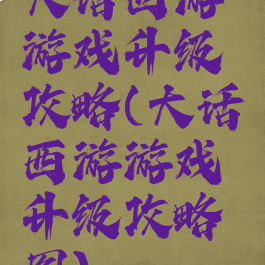 大话西游
游戏升级
攻略(大话
西游游戏
升级攻略
图)